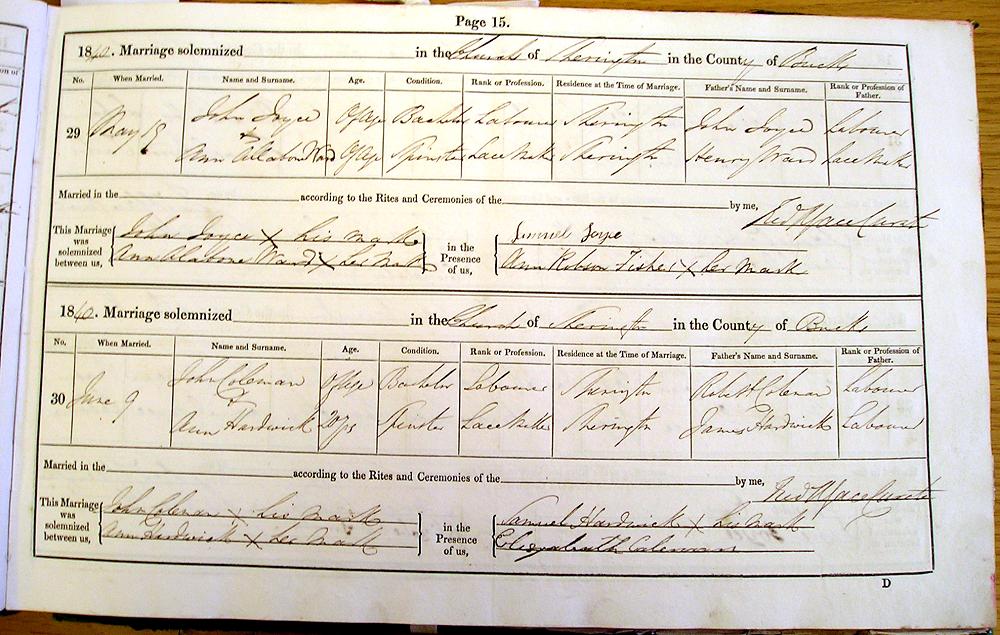 Page 15.
1840. Marriage solemnized in the Church of Sherington in the County of Bucks
No. When Married. Name and Surname. Age. Condition. Rank or Profession. Residence at the Time of Marriage. Father's Name and Surname. Rank or Profession of Father.
29 May 19 John Joyce Of Age Bachelor Labourer Sherington John Joyce Labourer
&
Ann Alabone Ward Of Age Spinster Lace Maker Sherington Henry Ward Lace Maker
Married in the according to the Rites and Ceremonies of the by me, Curate
This Marriage was solemnized between us, John Joyce X his mark in the Presence of us, Joyce
Ann Alabone Ward X her mark Ann Robson Fisher X her mark
1840. Marriage solemnized in the Church of Sherington in the County of Bucks
No. When Married. Name and Surname. Age. Condition. Rank or Profession. Residence at the Time of Marriage. Father's Name and Surname. Rank or Profession of Father.
30 June 9 John Coleman Of Age Bachelor Labourer Sherington Robert Coleman Labourer
&
Ann Hardwick 20 yrs Spinster Lace Maker Sherington James Hardwick Labourer
Married in the according to the Rites and Ceremonies of the by me, Curate
This Marriage was solemnized between us, John Coleman X his mark in the Presence of us, Samuel Hardwick X his mark
Ann Hardwick X her mark Elizabeth Coleman
D